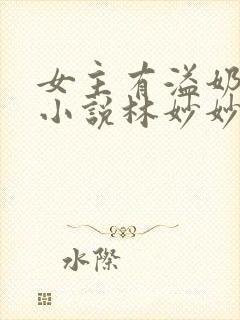 女主有溢奶
小說林妙妙
水際